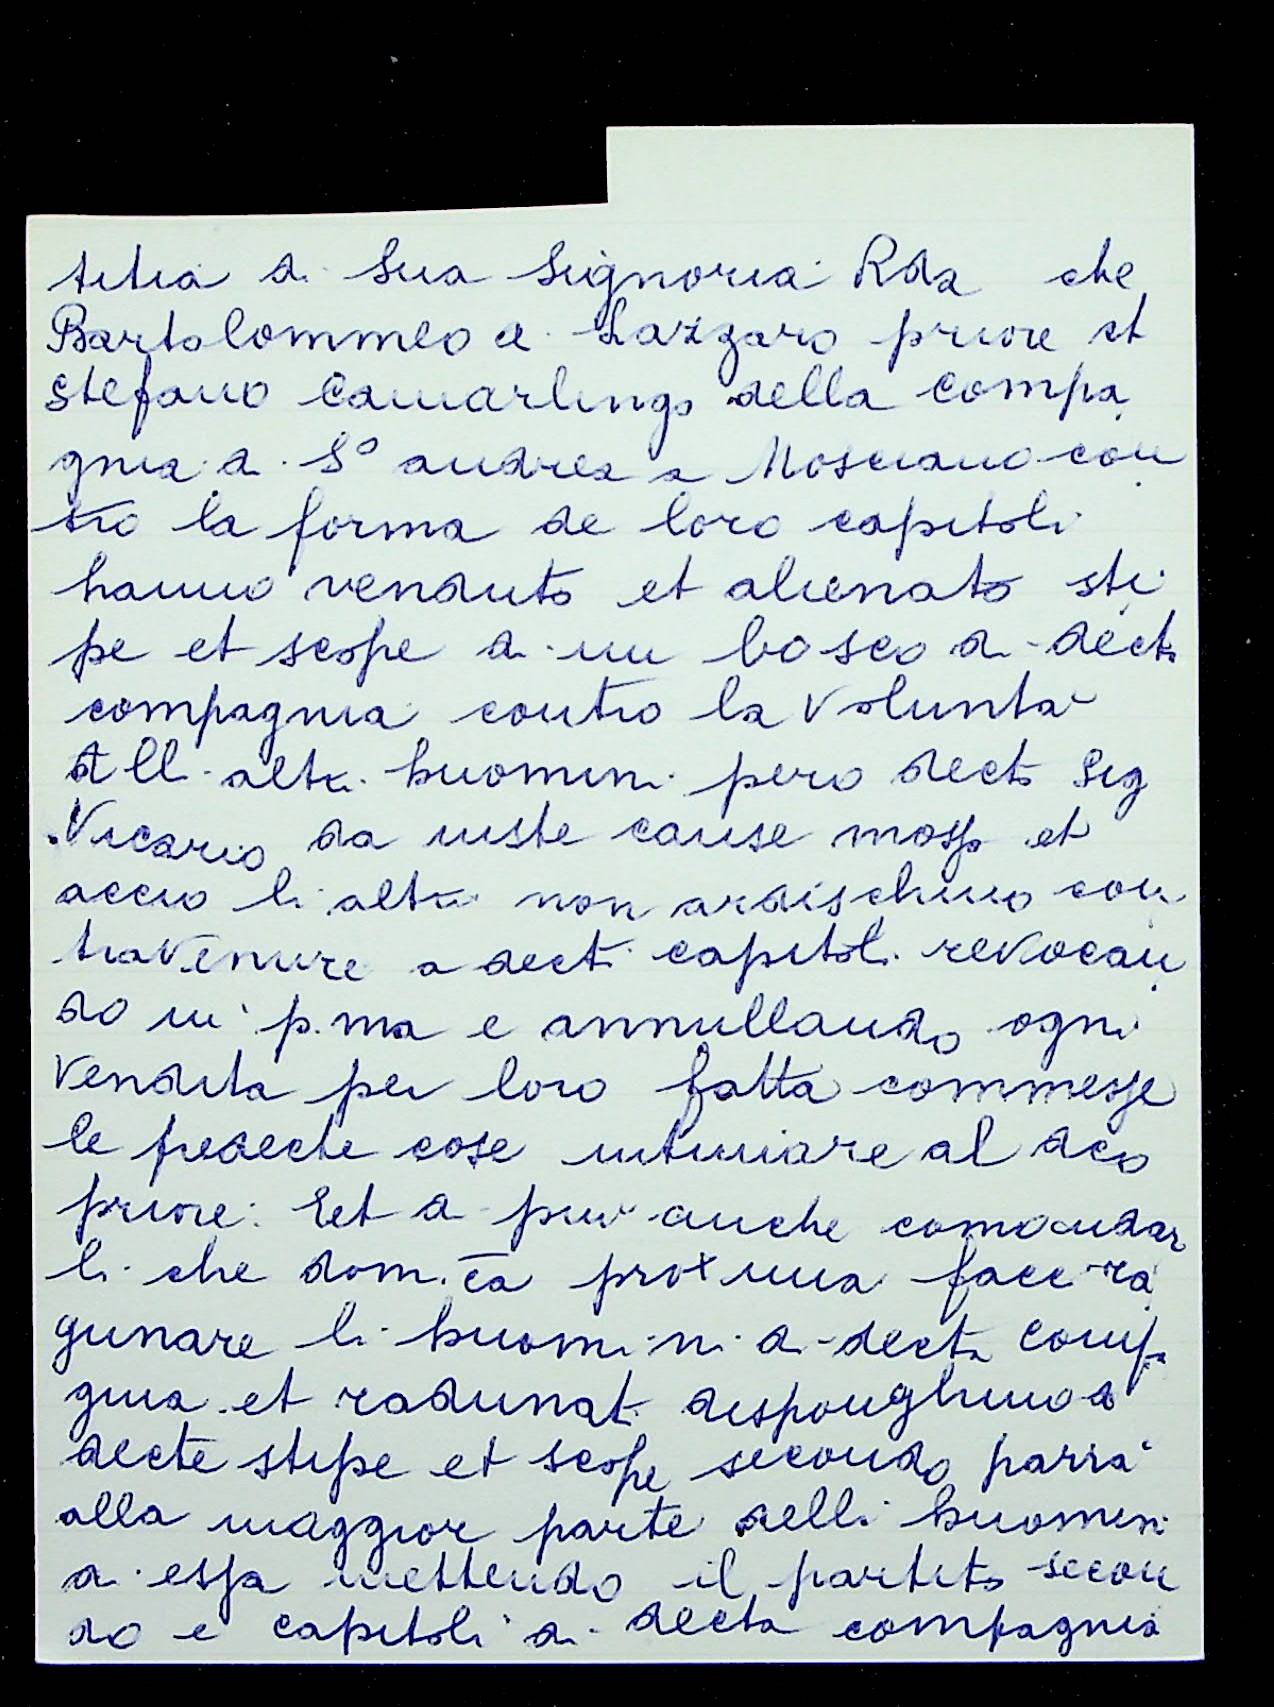 titia di Sua Signoria Rda che
Bartolommeo di Lazzaro priore et
Stefano Camarlingo della compa
gnia di S° andrea a Mosciano con
tro la forma de loro capitoli
hanno venduto et alienato sti
pe et scope di un bosco di decta
compagnia contro la Volunta
dell altri huomini pero decto Sig
Vicario da iuste cause mosso et
accio li altri non ardischino con
travenire a decti capitoli revocan
do in p.ma e annullando ogni
Vendita per loro fatta commesse
le predecte cose intimare al dco
priore: Et di piu anche comandar
li che dom.ca proxima facci ra
gunare li huomini di decta comp
gnia et radunati disponghino di
decte stipe et scope secondo parrà
alla maggior parte delli huomini
di essa mettendo il partito secon
do e capitoli di decta compagnia